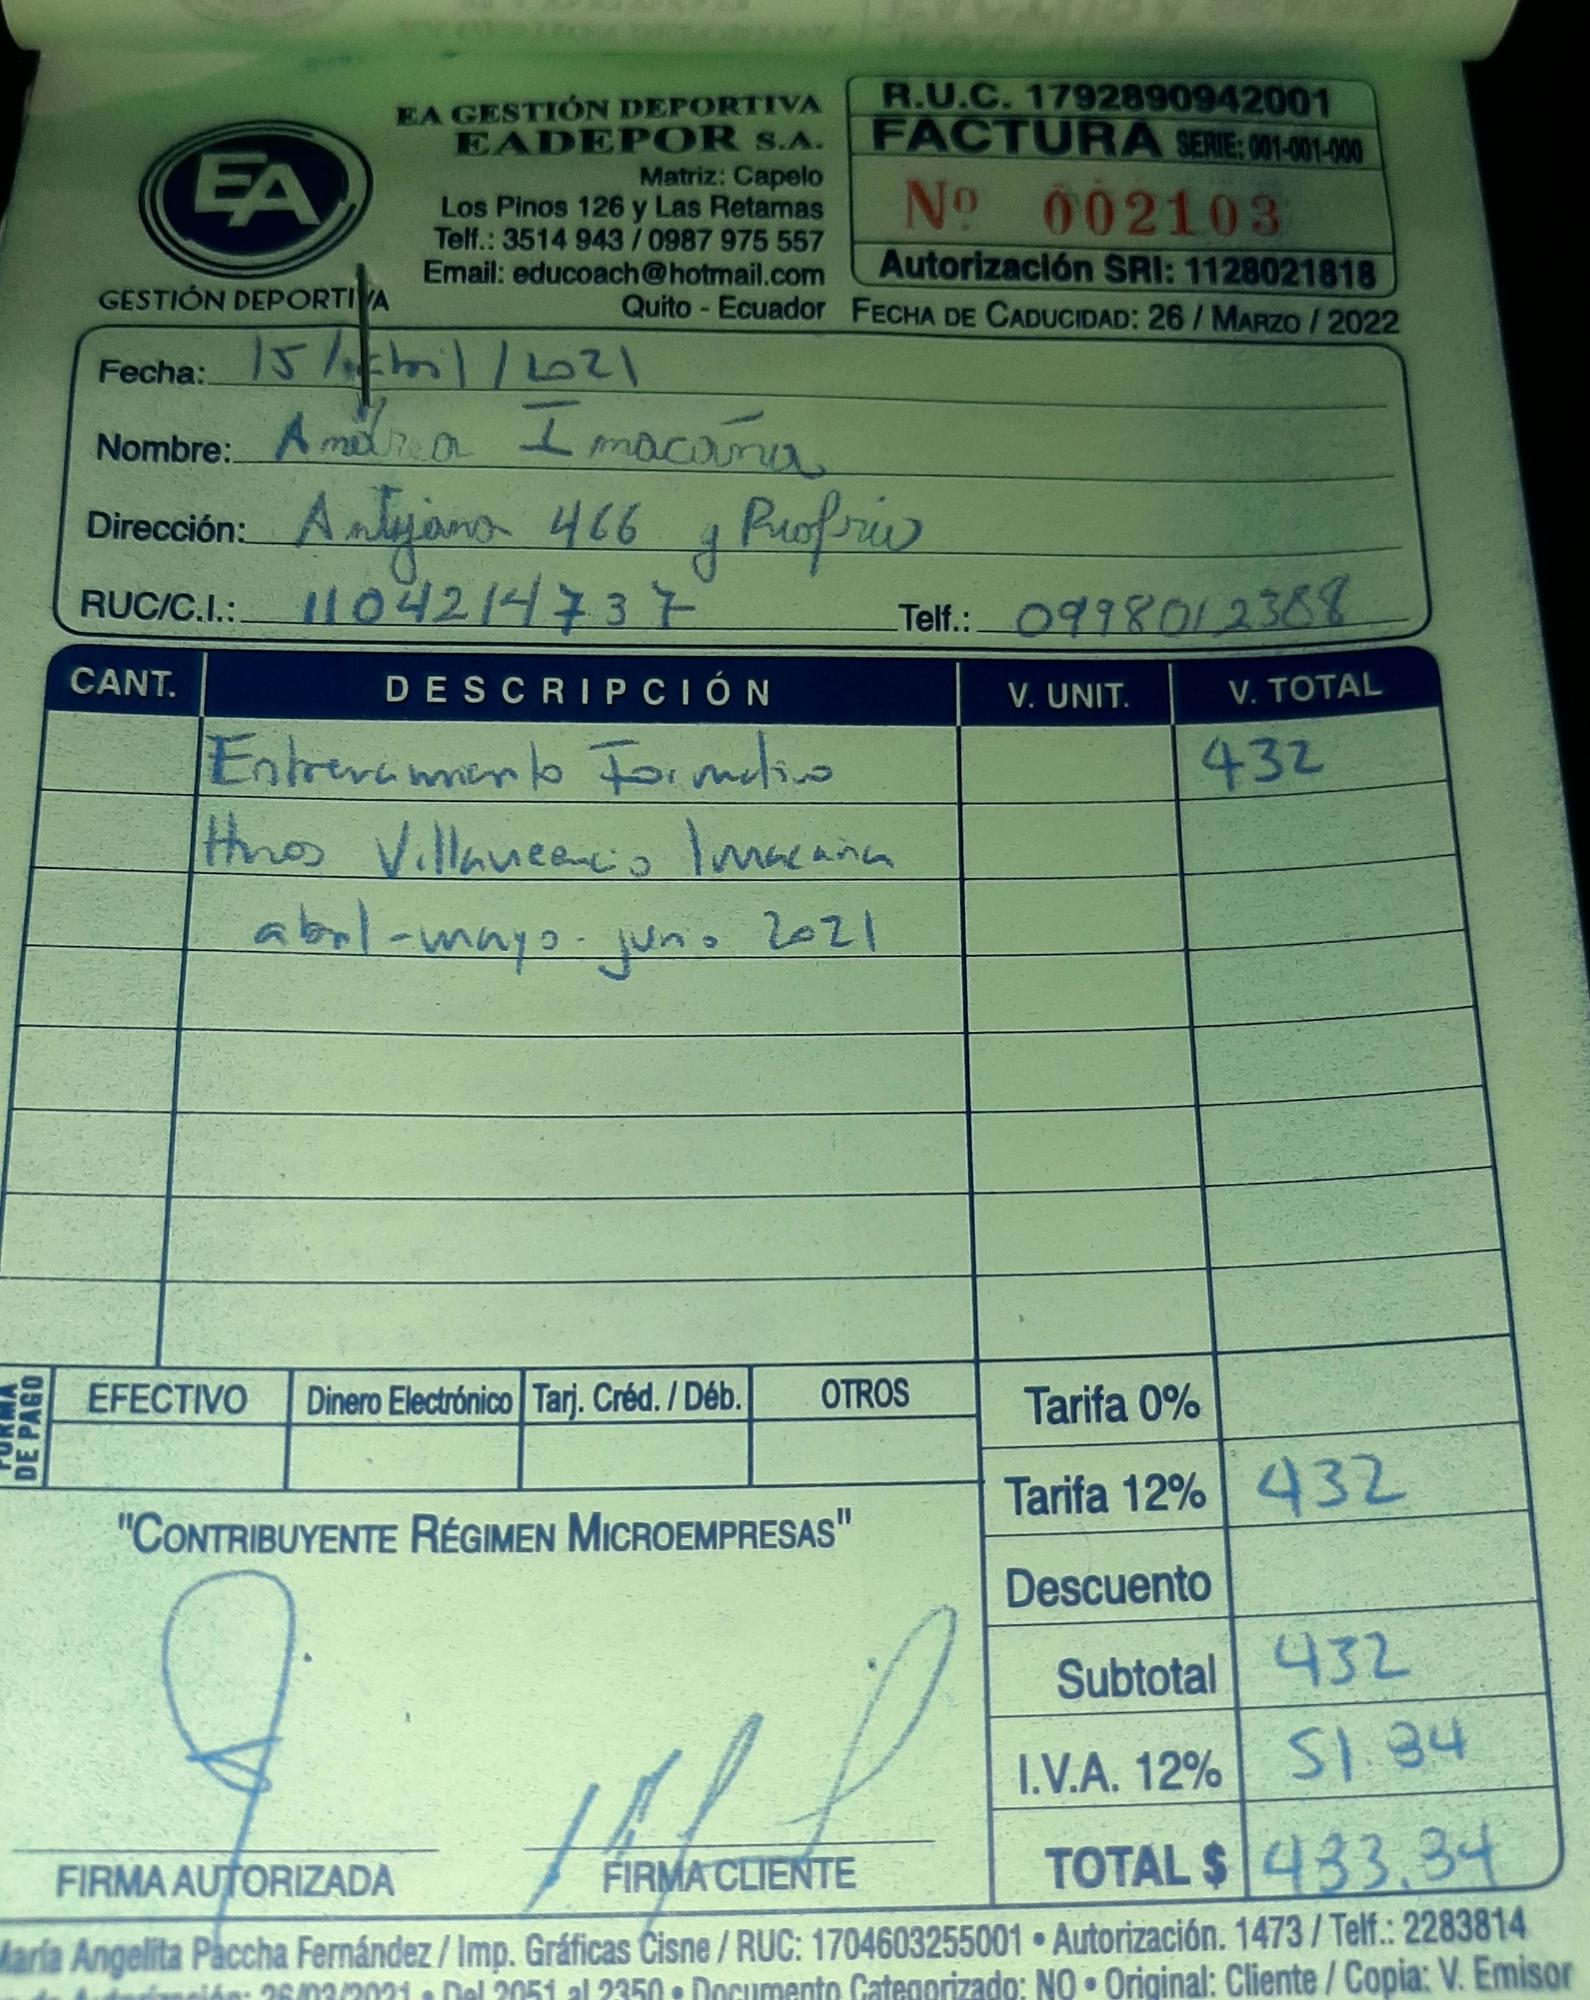 EA GESTIÓN DEPORTIVA
EADEPOR S.A.
Matriz: Capelo
Los Pinos 126 y Las Retamas
Telf.: 3514 943 / 0987 975 557
Email: educoach@hotmail.com
Quito - Ecuador
EA
GESTIÓN DEPORTIVA
R.U.C. 1792890942001
FACTURA SERIE: 001-001-000
Nº 002103
Autorización SRI: 1128021818
FECHA DE CADUCIDAD: 26 / MARZO / 2022
Fecha: 15 / abril / 2021
Nombre: Andrea Imacaña
Dirección: Antijana 466 y Riofrio
RUC/C.I.: 1104214737 Telf.: 0998012388
CANT. DESCRIPCIÓN V. UNIT. V. TOTAL
Entrenamiento Formativo 432
Hnos Villavicencio Imacaña
abril-mayo-junio 2021
FORMA DE PAGO
EFECTIVO Dinero Electrónico Tarj. Créd. / Déb. OTROS
Tarifa 0%
Tarifa 12% 432
Descuento
Subtotal 432
I.V.A. 12% 51.84
TOTAL $ 483.84
"CONTRIBUYENTE RÉGIMEN MICROEMPRESAS"
FIRMA AUTORIZADA FIRMA CLIENTE
María Angelita Paccha Fernández / Imp. Gráficas Cisne / RUC: 1704603255001 • Autorización. 1473 / Telf.: 2283814
Autorización: 26/03/2021 • Del 2051 al 2350 • Documento Categorizado: NO • Original: Cliente / Copia: V. Emisor